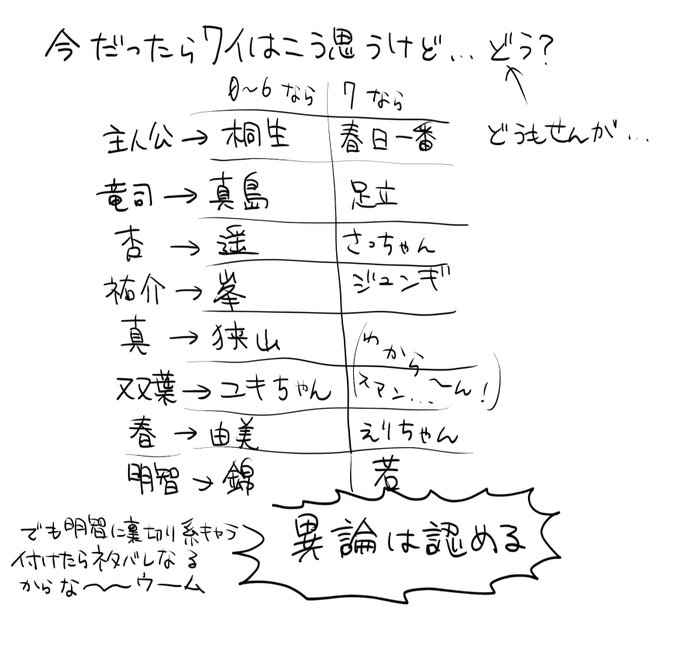 今だったらワイはこう思うけど…どう?
どうもせんが…
0〜6なら 7なら
主人公→桐生 春日一番
竜司→真島 足立
杏→遥 さっちゃん
祐介→峯 ジュンギ
真→狭山 (わから
双葉→ユキちゃん スマン…〜ん!)
春→由美 えりちゃん
明智→錦 若
でも明智に裏切り系キャラ
付けたらネタバレなる
からな〜〜ウーム
異論は認める